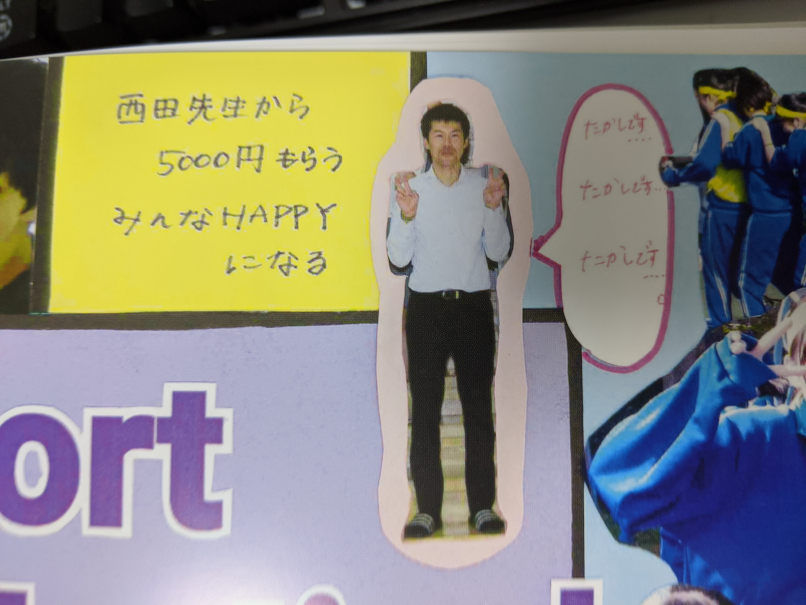 西田先生から
5000円もらう
みんなHAPPY
になる
たかしです....
たかしです...
たかしです....
ort